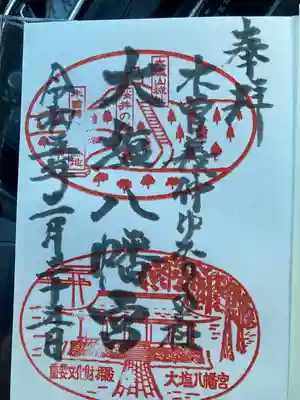 奉拝
木曽義仲ゆかりの社
大塩八幡宮
令和 年二月二十五日
重要文化財拝殿
大塩八幡宮